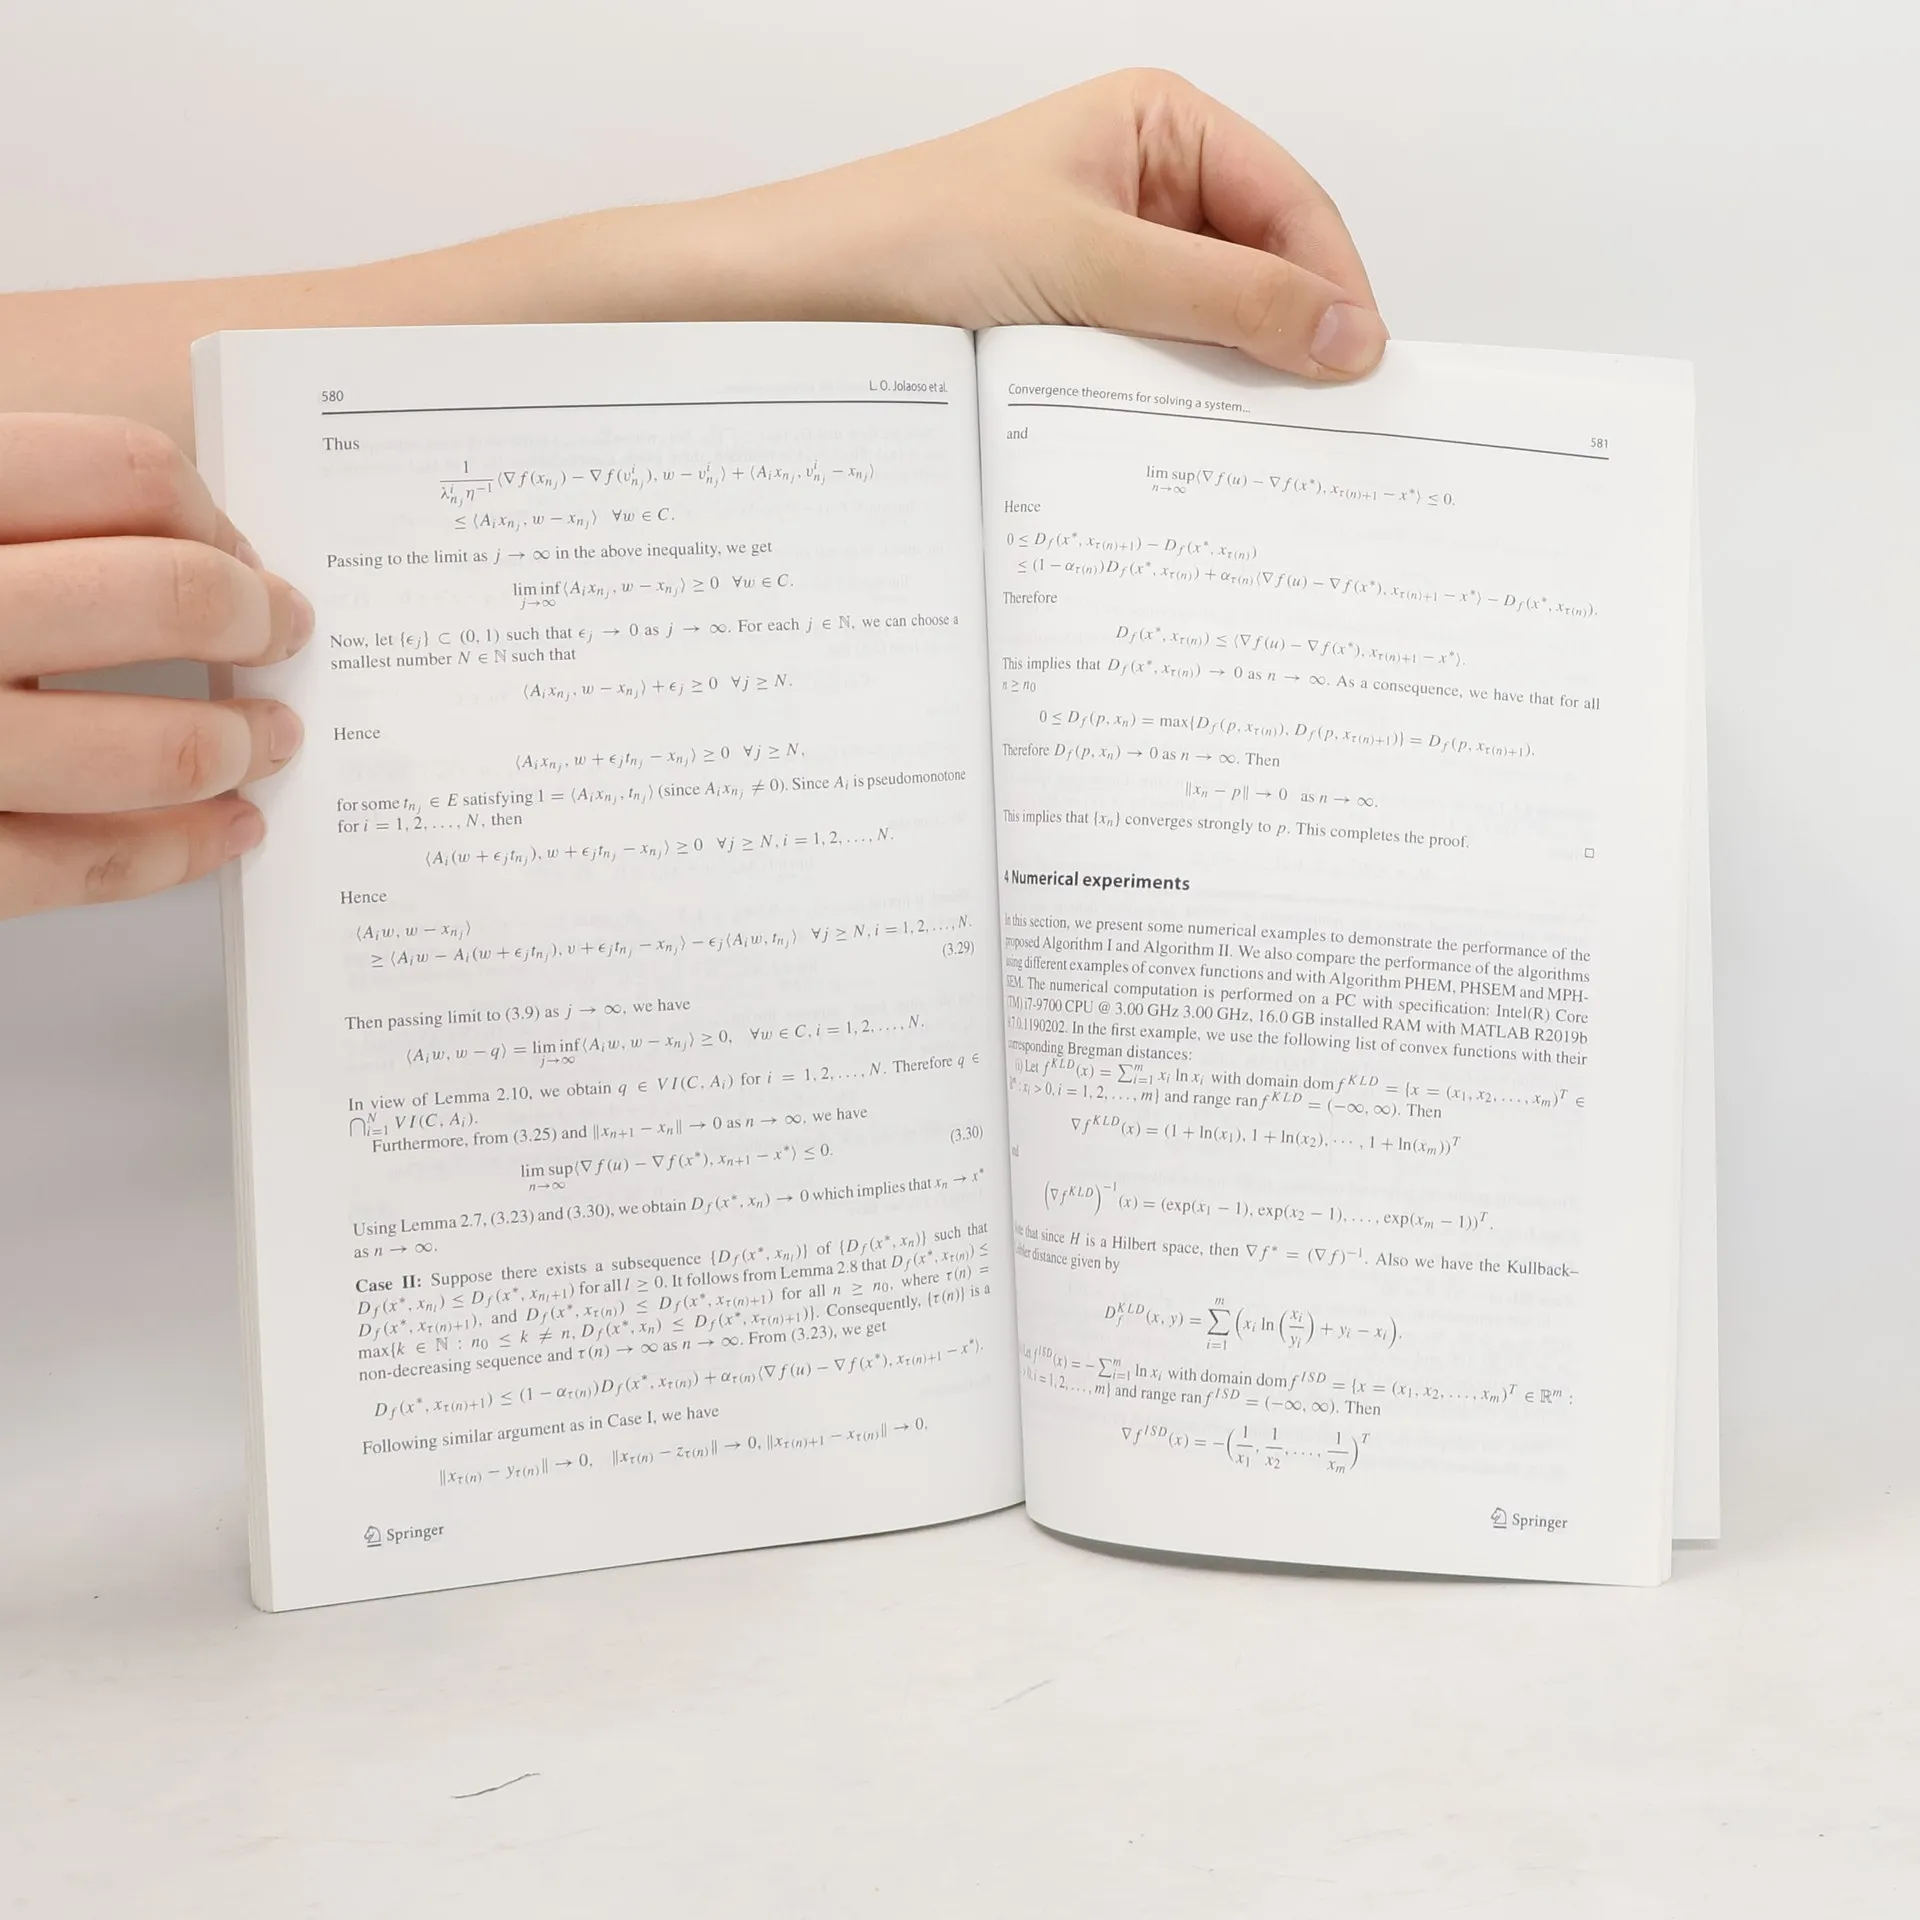 580
L. O. Jolaoso et al.
Thus
1/(λ^i_{n_j} η^{-1}) ⟨∇f(x_{n_j}) − ∇f(v^i_{n_j}), w − v^i_{n_j}⟩ + ⟨A_i x_{n_j}, v^i_{n_j} − x_{n_j}⟩
≤ ⟨A_i x_{n_j}, w − x_{n_j}⟩ ∀w ∈ C.
Passing to the limit as j → ∞ in the above inequality, we get
lim inf_{j→∞} ⟨A_i x_{n_j}, w − x_{n_j}⟩ ≥ 0 ∀w ∈ C.
Now, let {ϵ_j} ⊂ (0, 1) such that ϵ_j → 0 as j → ∞. For each j ∈ ℕ, we can choose a
smallest number N ∈ ℕ such that
⟨A_i x_{n_j}, w − x_{n_j}⟩ + ϵ_j ≥ 0 ∀j ≥ N.
Hence
⟨A_i x_{n_j}, w + ϵ_j t_{n_j} − x_{n_j}⟩ ≥ 0 ∀j ≥ N,
for some t_{n_j} ∈ E satisfying 1 = ⟨A_i x_{n_j}, t_{n_j}⟩ (since A_i x_{n_j} ≠ 0). Since A_i is pseudomonotone
for i = 1, 2, . . . , N, then
⟨A_i(w + ϵ_j t_{n_j}), w + ϵ_j t_{n_j} − x_{n_j}⟩ ≥ 0 ∀j ≥ N, i = 1, 2, . . . , N.
Hence
⟨A_i w, w − x_{n_j}⟩
≥ ⟨A_i w − A_i(w + ϵ_j t_{n_j}), v + ϵ_j t_{n_j} − x_{n_j}⟩ − ϵ_j⟨A_i w, t_{n_j}⟩ ∀j ≥ N, i = 1, 2, . . . , N.
(3.29)
Then passing limit to (3.9) as j → ∞, we have
⟨A_i w, w − q⟩ = lim inf_{j→∞} ⟨A_i w, w − x_{n_j}⟩ ≥ 0, ∀w ∈ C, i = 1, 2, . . . , N.
In view of Lemma 2.10, we obtain q ∈ VI(C, A_i) for i = 1, 2, . . . , N. Therefore q ∈
⋂_{i=1}^N VI(C, A_i).
Furthermore, from (3.25) and ‖x_{n+1} − x_n‖ → 0 as n → ∞, we have
lim sup_{n→∞} ⟨∇f(u) − ∇f(x*), x_{n+1} − x*⟩ ≤ 0. (3.30)
Using Lemma 2.7, (3.23) and (3.30), we obtain D_f(x*, x_n) → 0 which implies that x_n → x*
as n → ∞.
Case II: Suppose there exists a subsequence {D_f(x*, x_{n_l})} of {D_f(x*, x_n)} such that
D_f(x*, x_{n_l}) ≤ D_f(x*, x_{n_l+1}) for all l ≥ 0. It follows from Lemma 2.8 that D_f(x*, x_{τ(n)}) ≤
D_f(x*, x_{τ(n)+1}), and D_f(x*, x_{τ(n)}) ≤ D_f(x*, x_{τ(n)+1}) for all n ≥ n_0, where τ(n) =
max{k ∈ ℕ : n_0 ≤ k ≠ n, D_f(x*, x_n) ≤ D_f(x*, x_{τ(n)+1})}. Consequently, {τ(n)} is a
non-decreasing sequence and τ(n) → ∞ as n → ∞. From (3.23), we get
D_f(x*, x_{τ(n)+1}) ≤ (1 − α_{τ(n)})D_f(x*, x_{τ(n)}) + α_{τ(n)}⟨∇f(u) − ∇f(x*), x_{τ(n)+1} − x*⟩.
Following similar argument as in Case I, we have
‖x_{τ(n)} − y_{τ(n)}‖ → 0, ‖x_{τ(n)} − z_{τ(n)}‖ → 0, ‖x_{τ(n)+1} − x_{τ(n)}‖ → 0,
Springer
Convergence theorems for solving a system...
581
and
lim sup_{n→∞} ⟨∇f(u) − ∇f(x*), x_{τ(n)+1} − x*⟩ ≤ 0.
Hence
0 ≤ D_f(x*, x_{τ(n)+1}) − D_f(x*, x_{τ(n)})
≤ (1 − α_{τ(n)})D_f(x*, x_{τ(n)}) + α_{τ(n)}⟨∇f(u) − ∇f(x*), x_{τ(n)+1} − x*⟩ − D_f(x*, x_{τ(n)}).
Therefore
D_f(x*, x_{τ(n)}) ≤ ⟨∇f(u) − ∇f(x*), x_{τ(n)+1} − x*⟩.
This implies that D_f(x*, x_{τ(n)}) → 0 as n → ∞. As a consequence, we have that for all
n ≥ n_0
0 ≤ D_f(p, x_n) = max{D_f(p, x_{τ(n)}), D_f(p, x_{τ(n)+1})} = D_f(p, x_{τ(n)+1}).
Therefore D_f(p, x_n) → 0 as n → ∞. Then
‖x_n − p‖ → 0 as n → ∞.
This implies that {x_n} converges strongly to p. This completes the proof. □
4 Numerical experiments
In this section, we present some numerical examples to demonstrate the performance of the
proposed Algorithm I and Algorithm II. We also compare the performance of the algorithms
using different examples of convex functions and with Algorithm PHEM, PHSEM and MPH-
SEM. The numerical computation is performed on a PC with specification: Intel(R) Core
(TM) i7-9700 CPU @ 3.00 GHz 3.00 GHz, 16.0 GB installed RAM with MATLAB R2019b
9.7.0.1190202. In the first example, we use the following list of convex functions with their
corresponding Bregman distances:
(i) Let f^{KLD}(x) = ∑_{i=1}^m x_i ln x_i with domain dom f^{KLD} = {x = (x_1, x_2, . . . , x_m)^T ∈
ℝ^m : x_i > 0, i = 1, 2, . . . , m} and range ran f^{KLD} = (−∞, ∞). Then
∇f^{KLD}(x) = (1 + ln(x_1), 1 + ln(x_2), · · · , 1 + ln(x_m))^T
and
(∇f^{KLD})^{−1}(x) = (exp(x_1 − 1), exp(x_2 − 1), . . . , exp(x_m − 1))^T.
that since H is a Hilbert space, then ∇f* = (∇f)^{−1}. Also we have the Kullback–
distance given by
D_f^{KLD}(x, y) = ∑_{i=1}^m (x_i ln(x_i/y_i) + y_i − x_i).
Let f^{ISD}(x) = −∑_{i=1}^m ln x_i with domain dom f^{ISD} = {x = (x_1, x_2, . . . , x_m)^T ∈ ℝ^m :
> 0, i = 1, 2, . . . , m} and range ran f^{ISD} = (−∞, ∞). Then
∇f^{ISD}(x) = −(1/x_1, 1/x_2, . . . , 1/x_m)^T
Springer